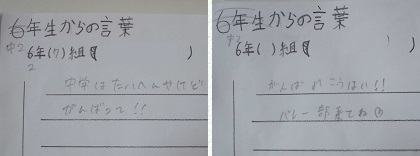 6年生からの言葉
中2 6年(7)組【 )
2
中学はたいへんやけど
がんばって!!
6年生からの言葉
中2 6年( )組【 )
がんばれこうはい!!
バレー部来てね